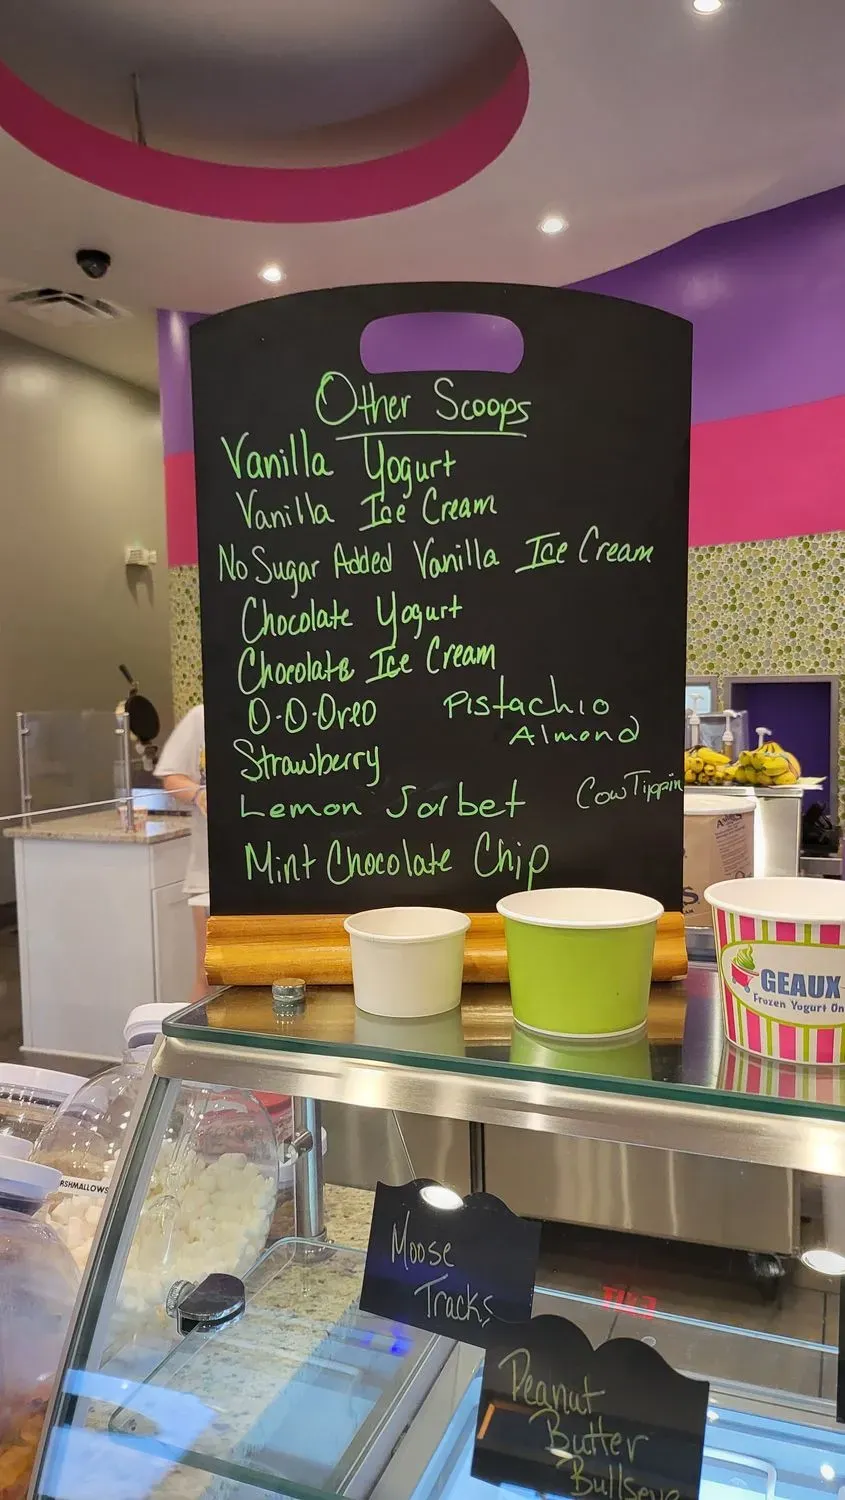 Other Scoops
Vanilla Yogurt
Vanilla Ice Cream
No Sugar Added Vanilla Ice Cream
Chocolate Yogurt
Chocolate Ice Cream
O-O-Oreo
Pistachio
Almond
Strawberry
Lemon Sorbet
CowTippin
Mint Chocolate Chip
GEAUX
Frozen Yogurt On
RSHMALLOWS
Moose
Tracks
Peanut
Butter
Bullseye